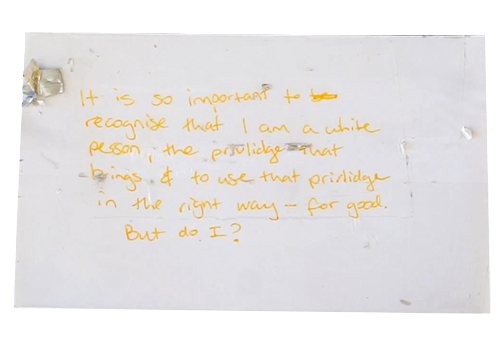 It is so important to
recognise that I am a white
person, the privlidge that
brings & to use that privlidge
in the right way – for good.
But do I?